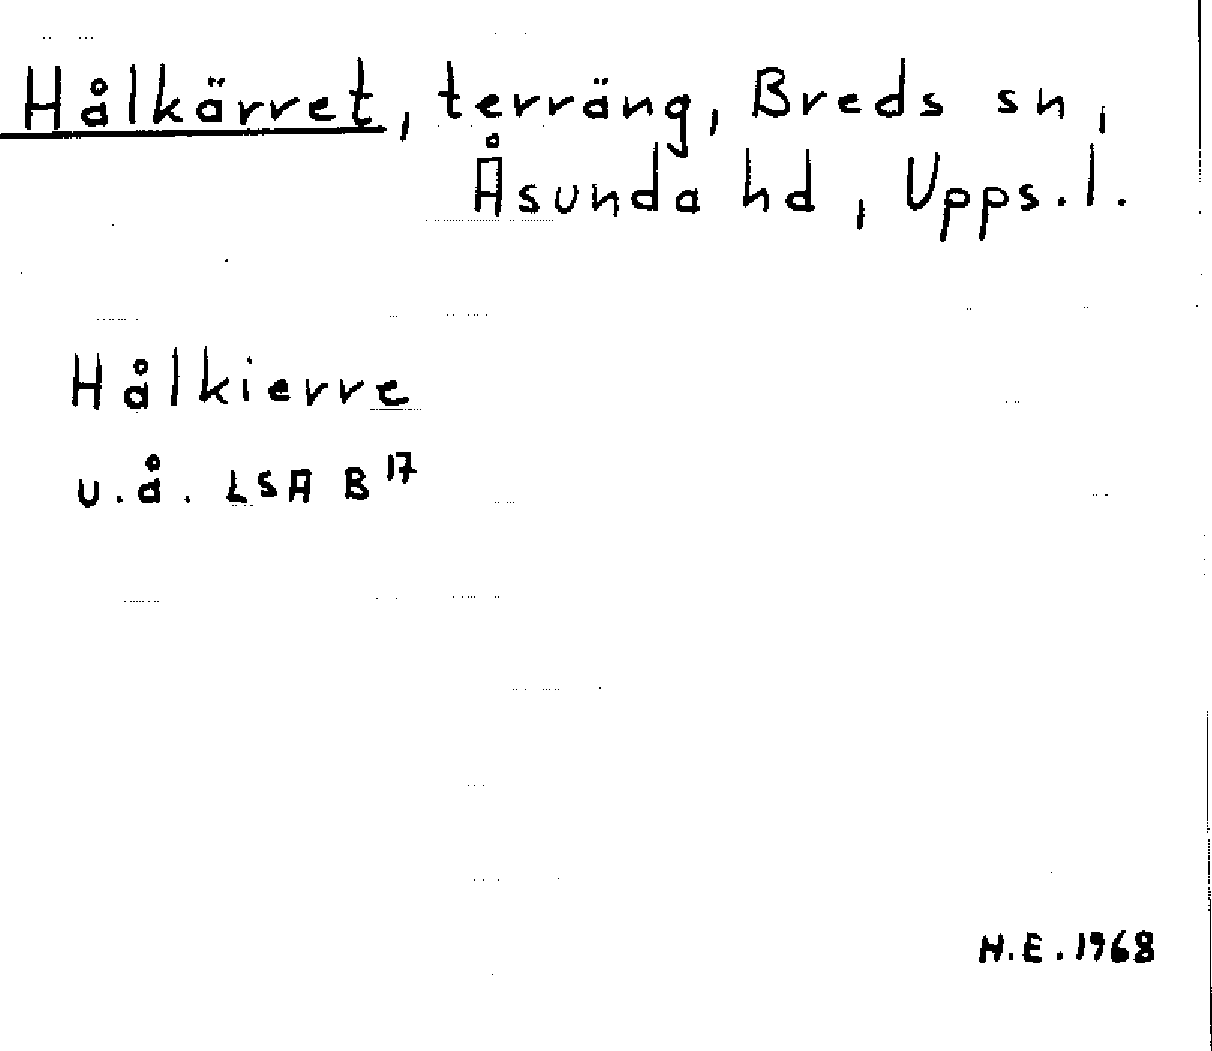 Hålkärret, terräng, Breds sn,
Åsunda hd, Upps.l.
Hålkierre
u.å. LSA B17
H.E. 1968